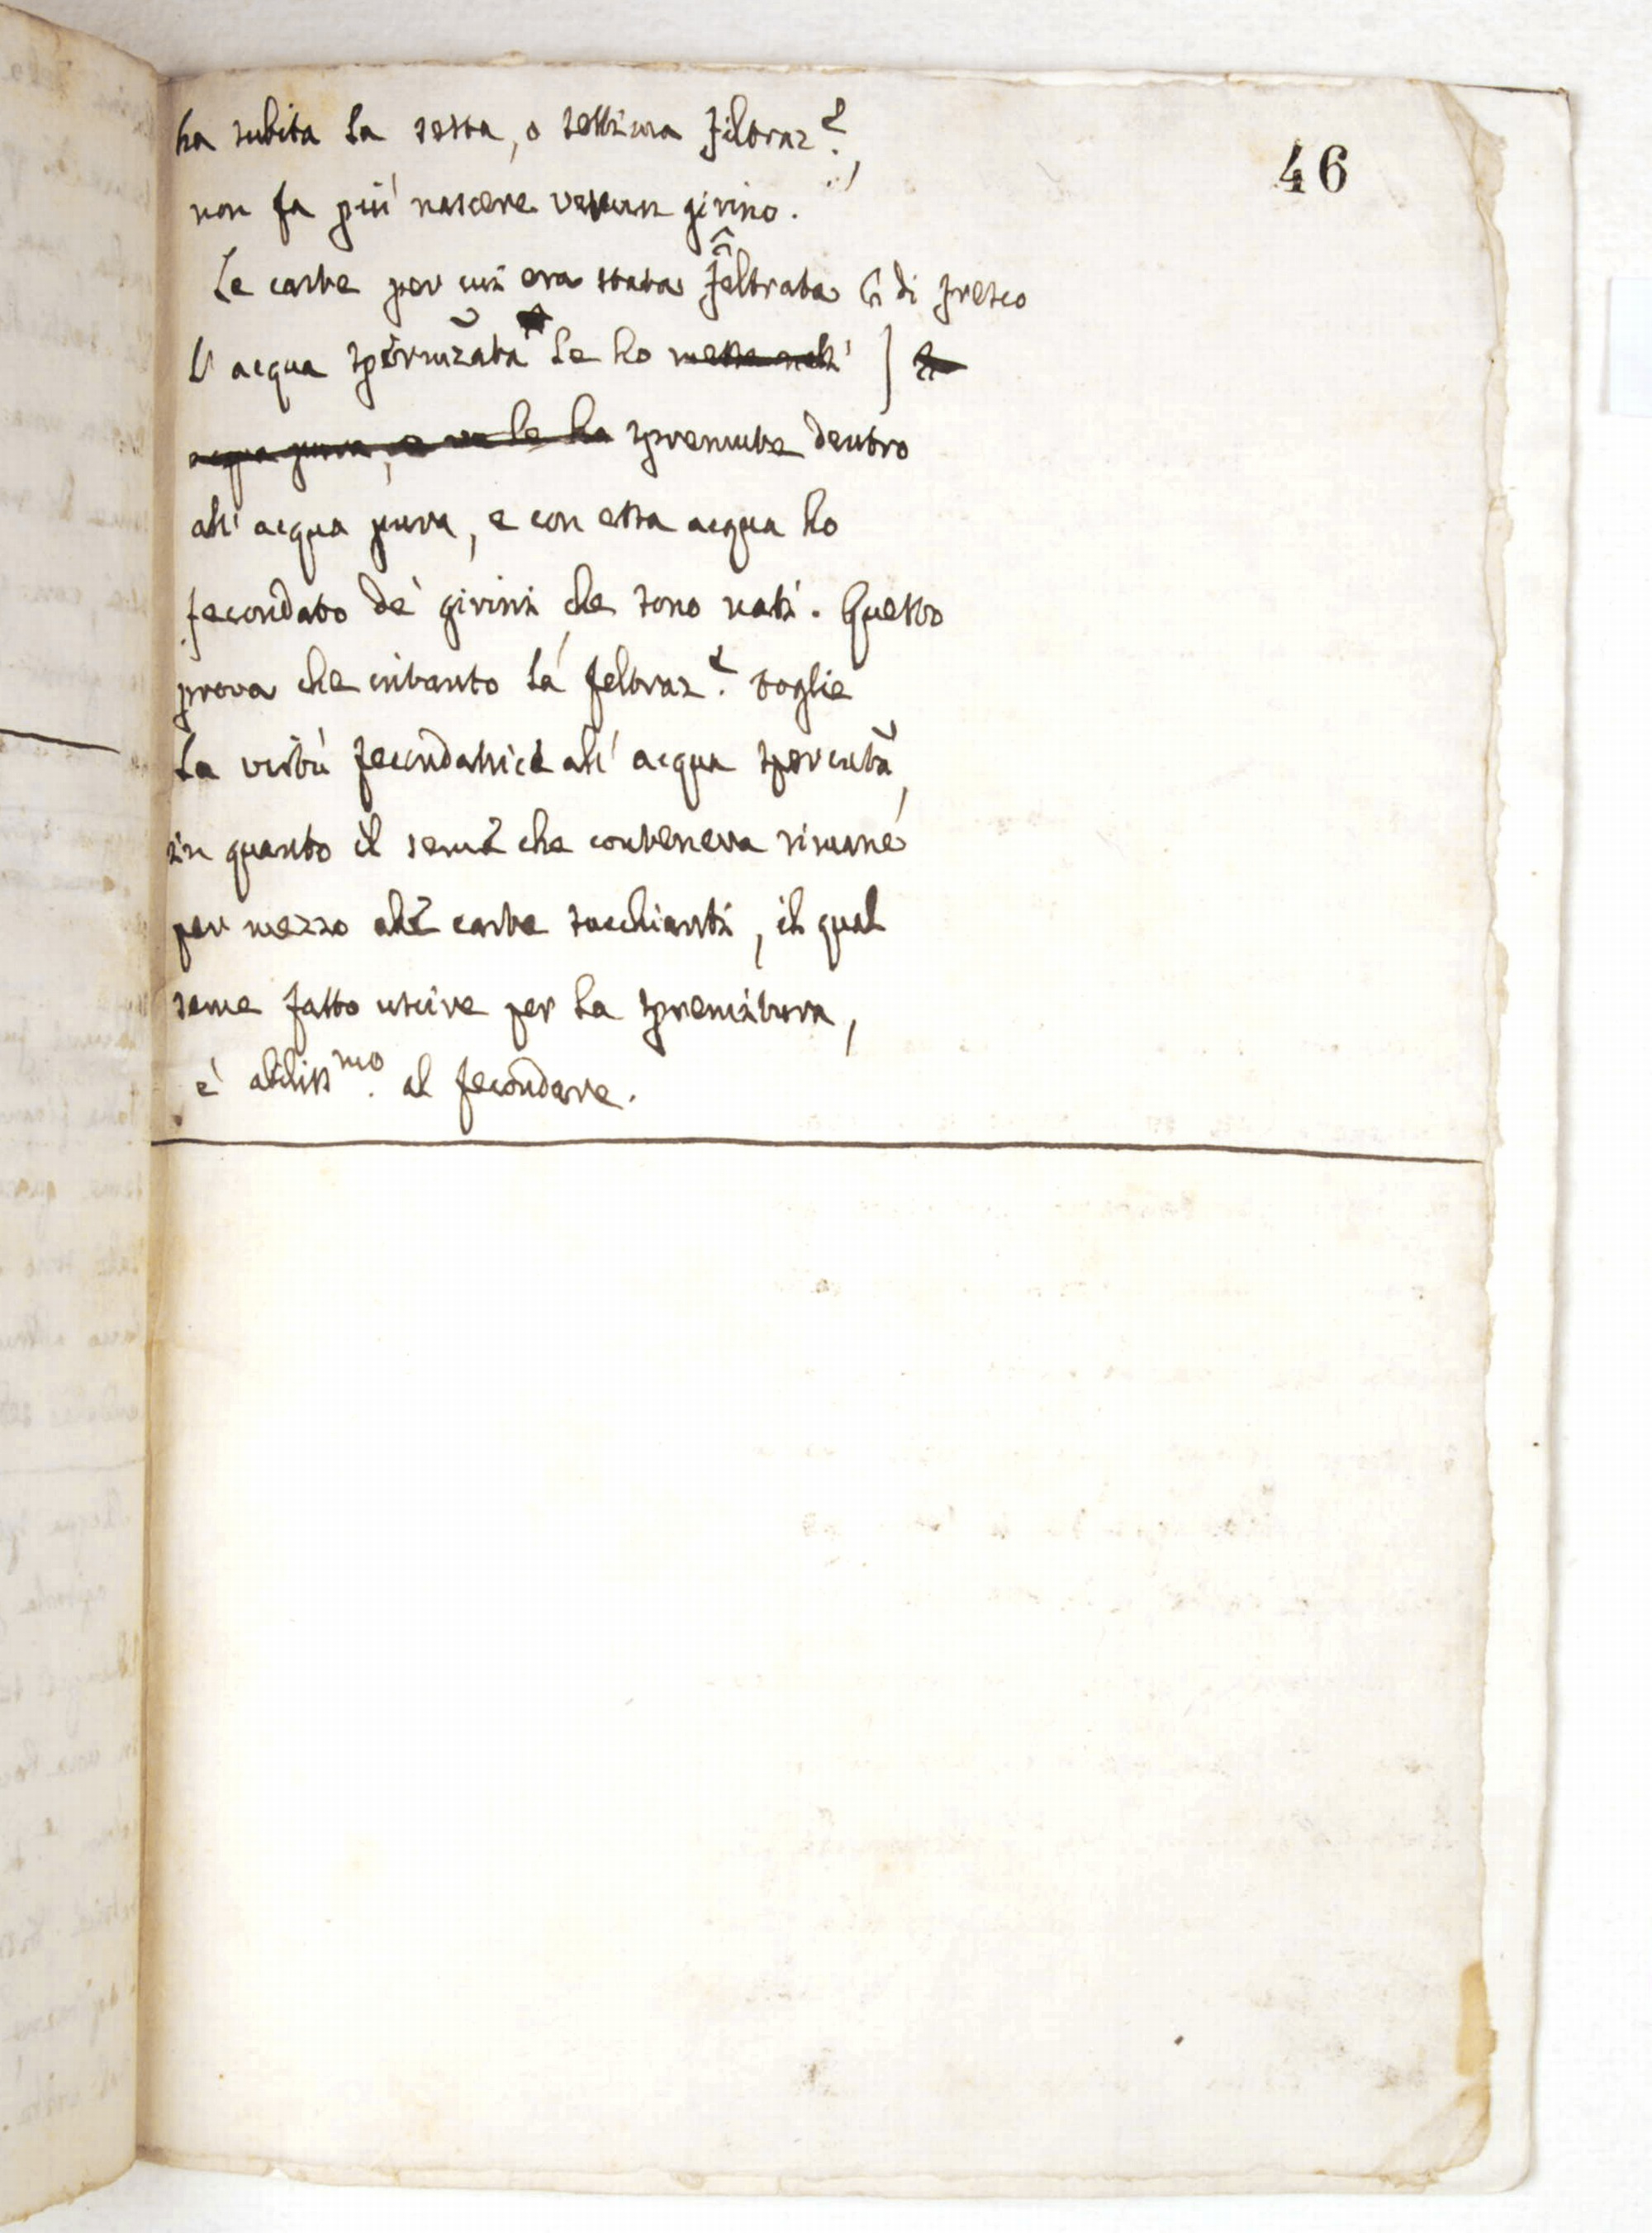 46
ha subita la sesta, o settima filtraz.e,
non fa più nascere verun girino.
Le carte per cui era stata feltrata di fresco
l'acqua spermizata le ho messe nell'
acqua pura, e ve le ho spremute dentro
all'acqua pura, e con essa acqua ho
fecondato de' girini che sono nati. Questo
prova che intanto la feltraz.e toglie
la virtù fecondatrice all'acqua spermata,
in quanto il seme che conteneva rimane
per mezzo alle carte succhianti, il qual
seme fatto uscire per la spremitura,
è abiliss.mo al fecondare.